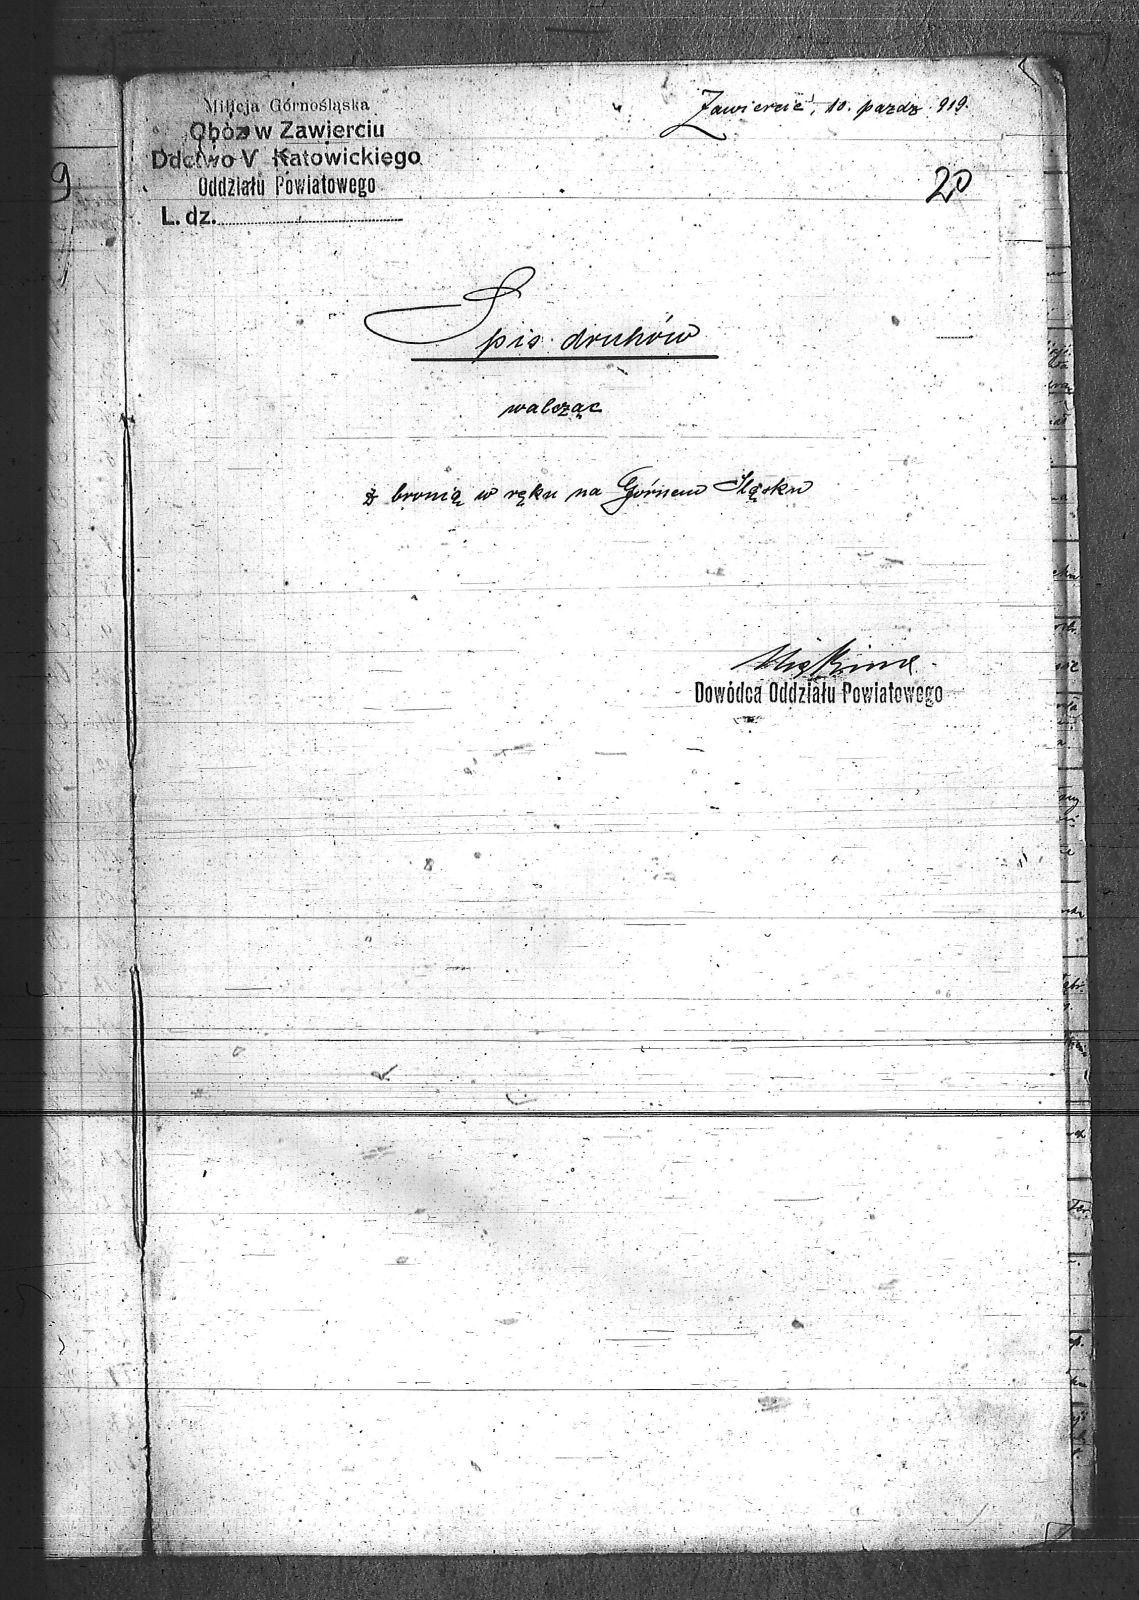 Milicja Górnośląska
Obóz w Zawierciu
Ddctwo V Katowickiego
Oddziału Powiatowego
L. dz.
Zawiercie, 10. pazdz. 919.
20
Spis druhów
walcząc
z bronią w ręku na Górnem Śląsku
Dowódca Oddziału Powiatowego